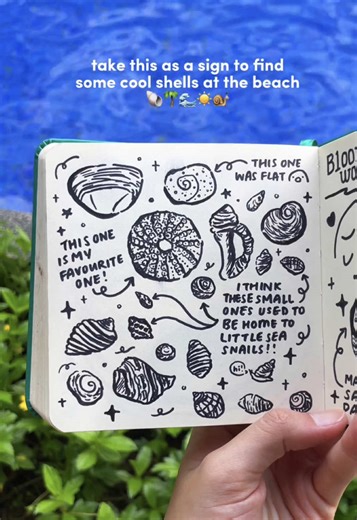 take this as a sign to find
some cool shells at the beach
🐚🌴🌊☀️🐌
THIS ONE
WAS FLAT
THIS ONE
IS MY
FAVOURITE
ONE!
I THINK
THESE SMALL
ONES USED TO
BE HOME TO
LITTLE SEA
SNAILS!!
hi!